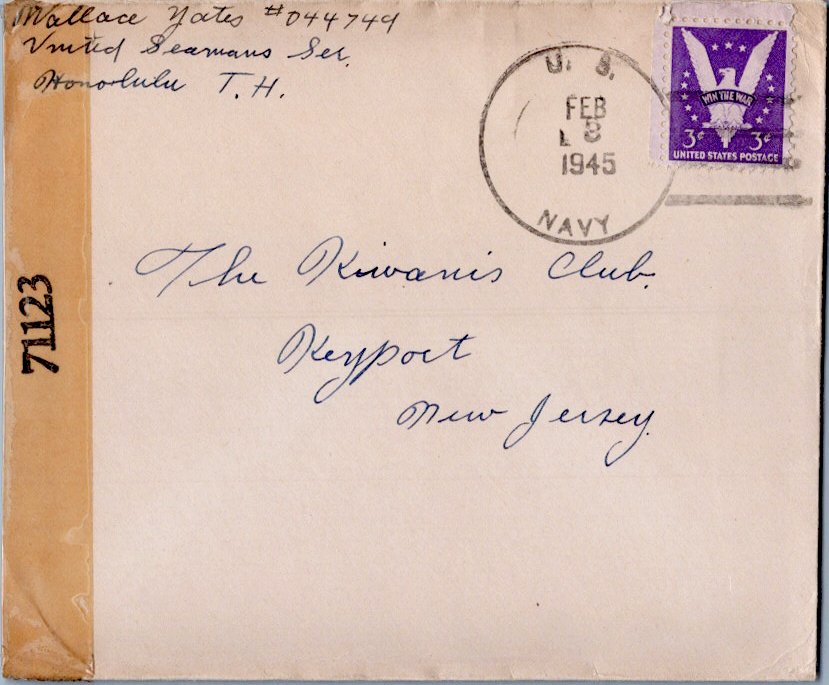 Wallace Yates #044749
United Seamans Ser.
Honolulu T.H.
U. S.
FEB
8
1945
NAVY
WIN THE WAR
3¢ 3¢
UNITED STATES POSTAGE
The Kiwanis Club.
Keyport
New Jersey.
71123